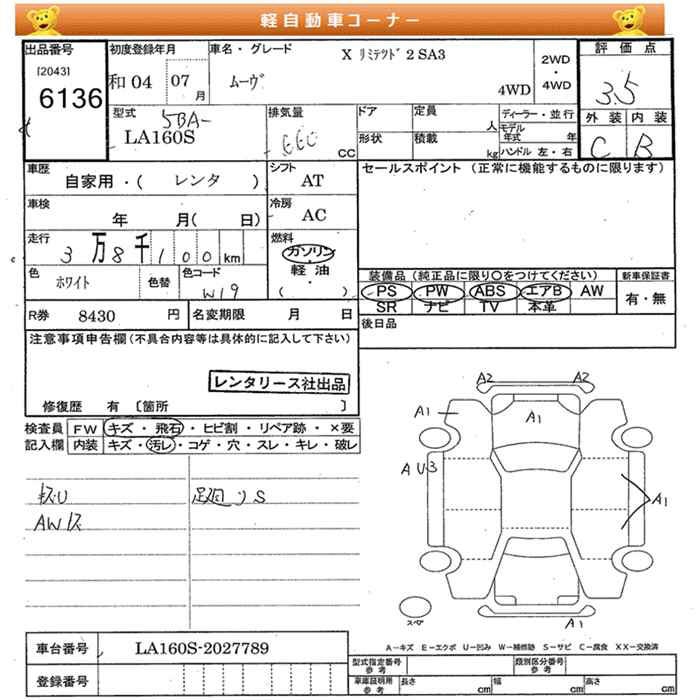 軽自動車コーナー
出品番号 初度登録年月 車名・グレード X ﾘﾐﾃﾂﾄﾞ2 SA3 2WD・4WD 評価点
[2043] 6136 和04 07月 ムーヴ 4WD 3.5
型式 5BA- LA160S 排気量 660 CC ドア 定員 人 ディーラー・並行 外装 内装
形状 積載 kg モデル年式 年 ハンドル 左・右 C B
車歴 自家用・( レンタ ) シフト AT セールスポイント (正常に機能するものに限ります)
車検 年 月( 日) 冷房 AC
走行 3万8千100km 燃料 ガソリン・軽油・( )
色 ホワイト 色替 色コード W19 装備品(純正品に限り○をつけてください) 新車保証書
PS PW ABS エアB AW 有・無
SR ナビ TV 本革
R券 8430 円 名変期限 月 日 後日品
注意事項申告欄(不具合内容等は具体的に記入して下さい)
レンタリース社出品
修復歴 有 〔箇所 〕
検査員 FW キズ・飛石・ヒビ割・リペア跡・×要
記入欄 内装 キズ・汚レ・コゲ・穴・スレ・キレ・破レ
A2 A2
A1 A1
AU3 A1
キズU S
AWキズ
スペア A1
A-キズ E-エクボ U-凹み W-補修跡 S-サビ C-腐食 XX-交換済
車台番号 LA160S-2027789 型式指定番号 参考 類別区分番号 参考
登録番号 車庫証明用 参考 長さ cm 幅 cm 高さ cm